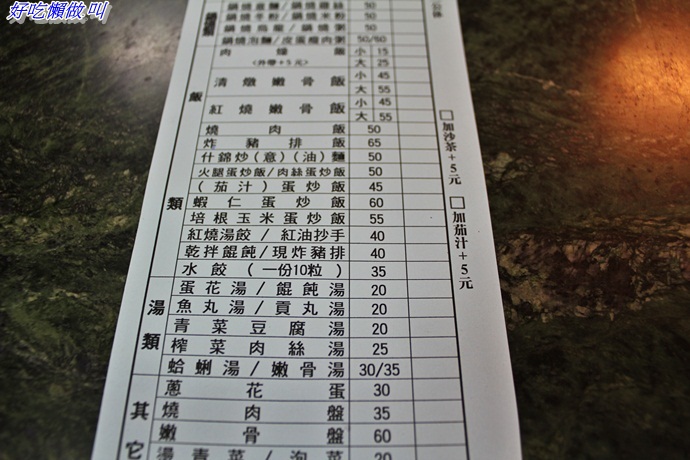 好吃懶做 叫
鍋燒意麵/鍋燒雞絲 50
鍋燒冬粉/鍋燒米粉 50
鍋燒烏龍/鍋燒粥 50
鍋燒泡麵/皮蛋瘦肉粥 50/60
飯類
肉燥飯 小 15
<外帶+5元> 大 25
清燉嫩骨飯 小 45
大 55
紅燒嫩骨飯 小 45
大 55
燒肉飯 50
炸豬排飯 65
什錦炒(意)(油)麵 50
火腿蛋炒飯/肉絲蛋炒飯 50
(茄汁)蛋炒飯 45
蝦仁蛋炒飯 60
培根玉米蛋炒飯 55
紅燒湯餃/紅油抄手 40
乾拌餛飩/現炸豬排 40
水餃(一份10粒) 35
湯類
蛋花湯/餛飩湯 20
魚丸湯/貢丸湯 20
青菜豆腐湯 20
榨菜肉絲湯 25
蛤蜊湯/嫩骨湯 30/35
其它
蔥花蛋 30
燒肉盤 35
嫩骨盤 60
燙青菜/泡菜 20
□加沙茶+5元
□加茄汁+5元